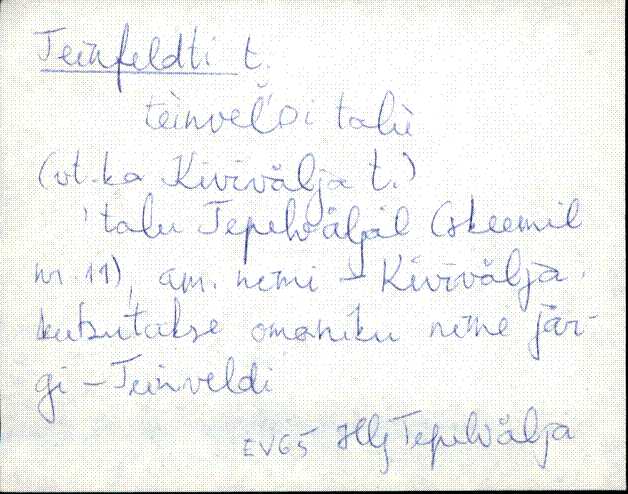 Teinfeldti t.
tèinveĺ̆Di talù
(vt. ka Kivivälja t.)
'talu Tepelväljal (skeemil
nr. 11), am. nimi - Kivivälja.
kutsutakse omaniku nime jär-
gi - Teinveldi
EV65 Hlj Tepelvälja